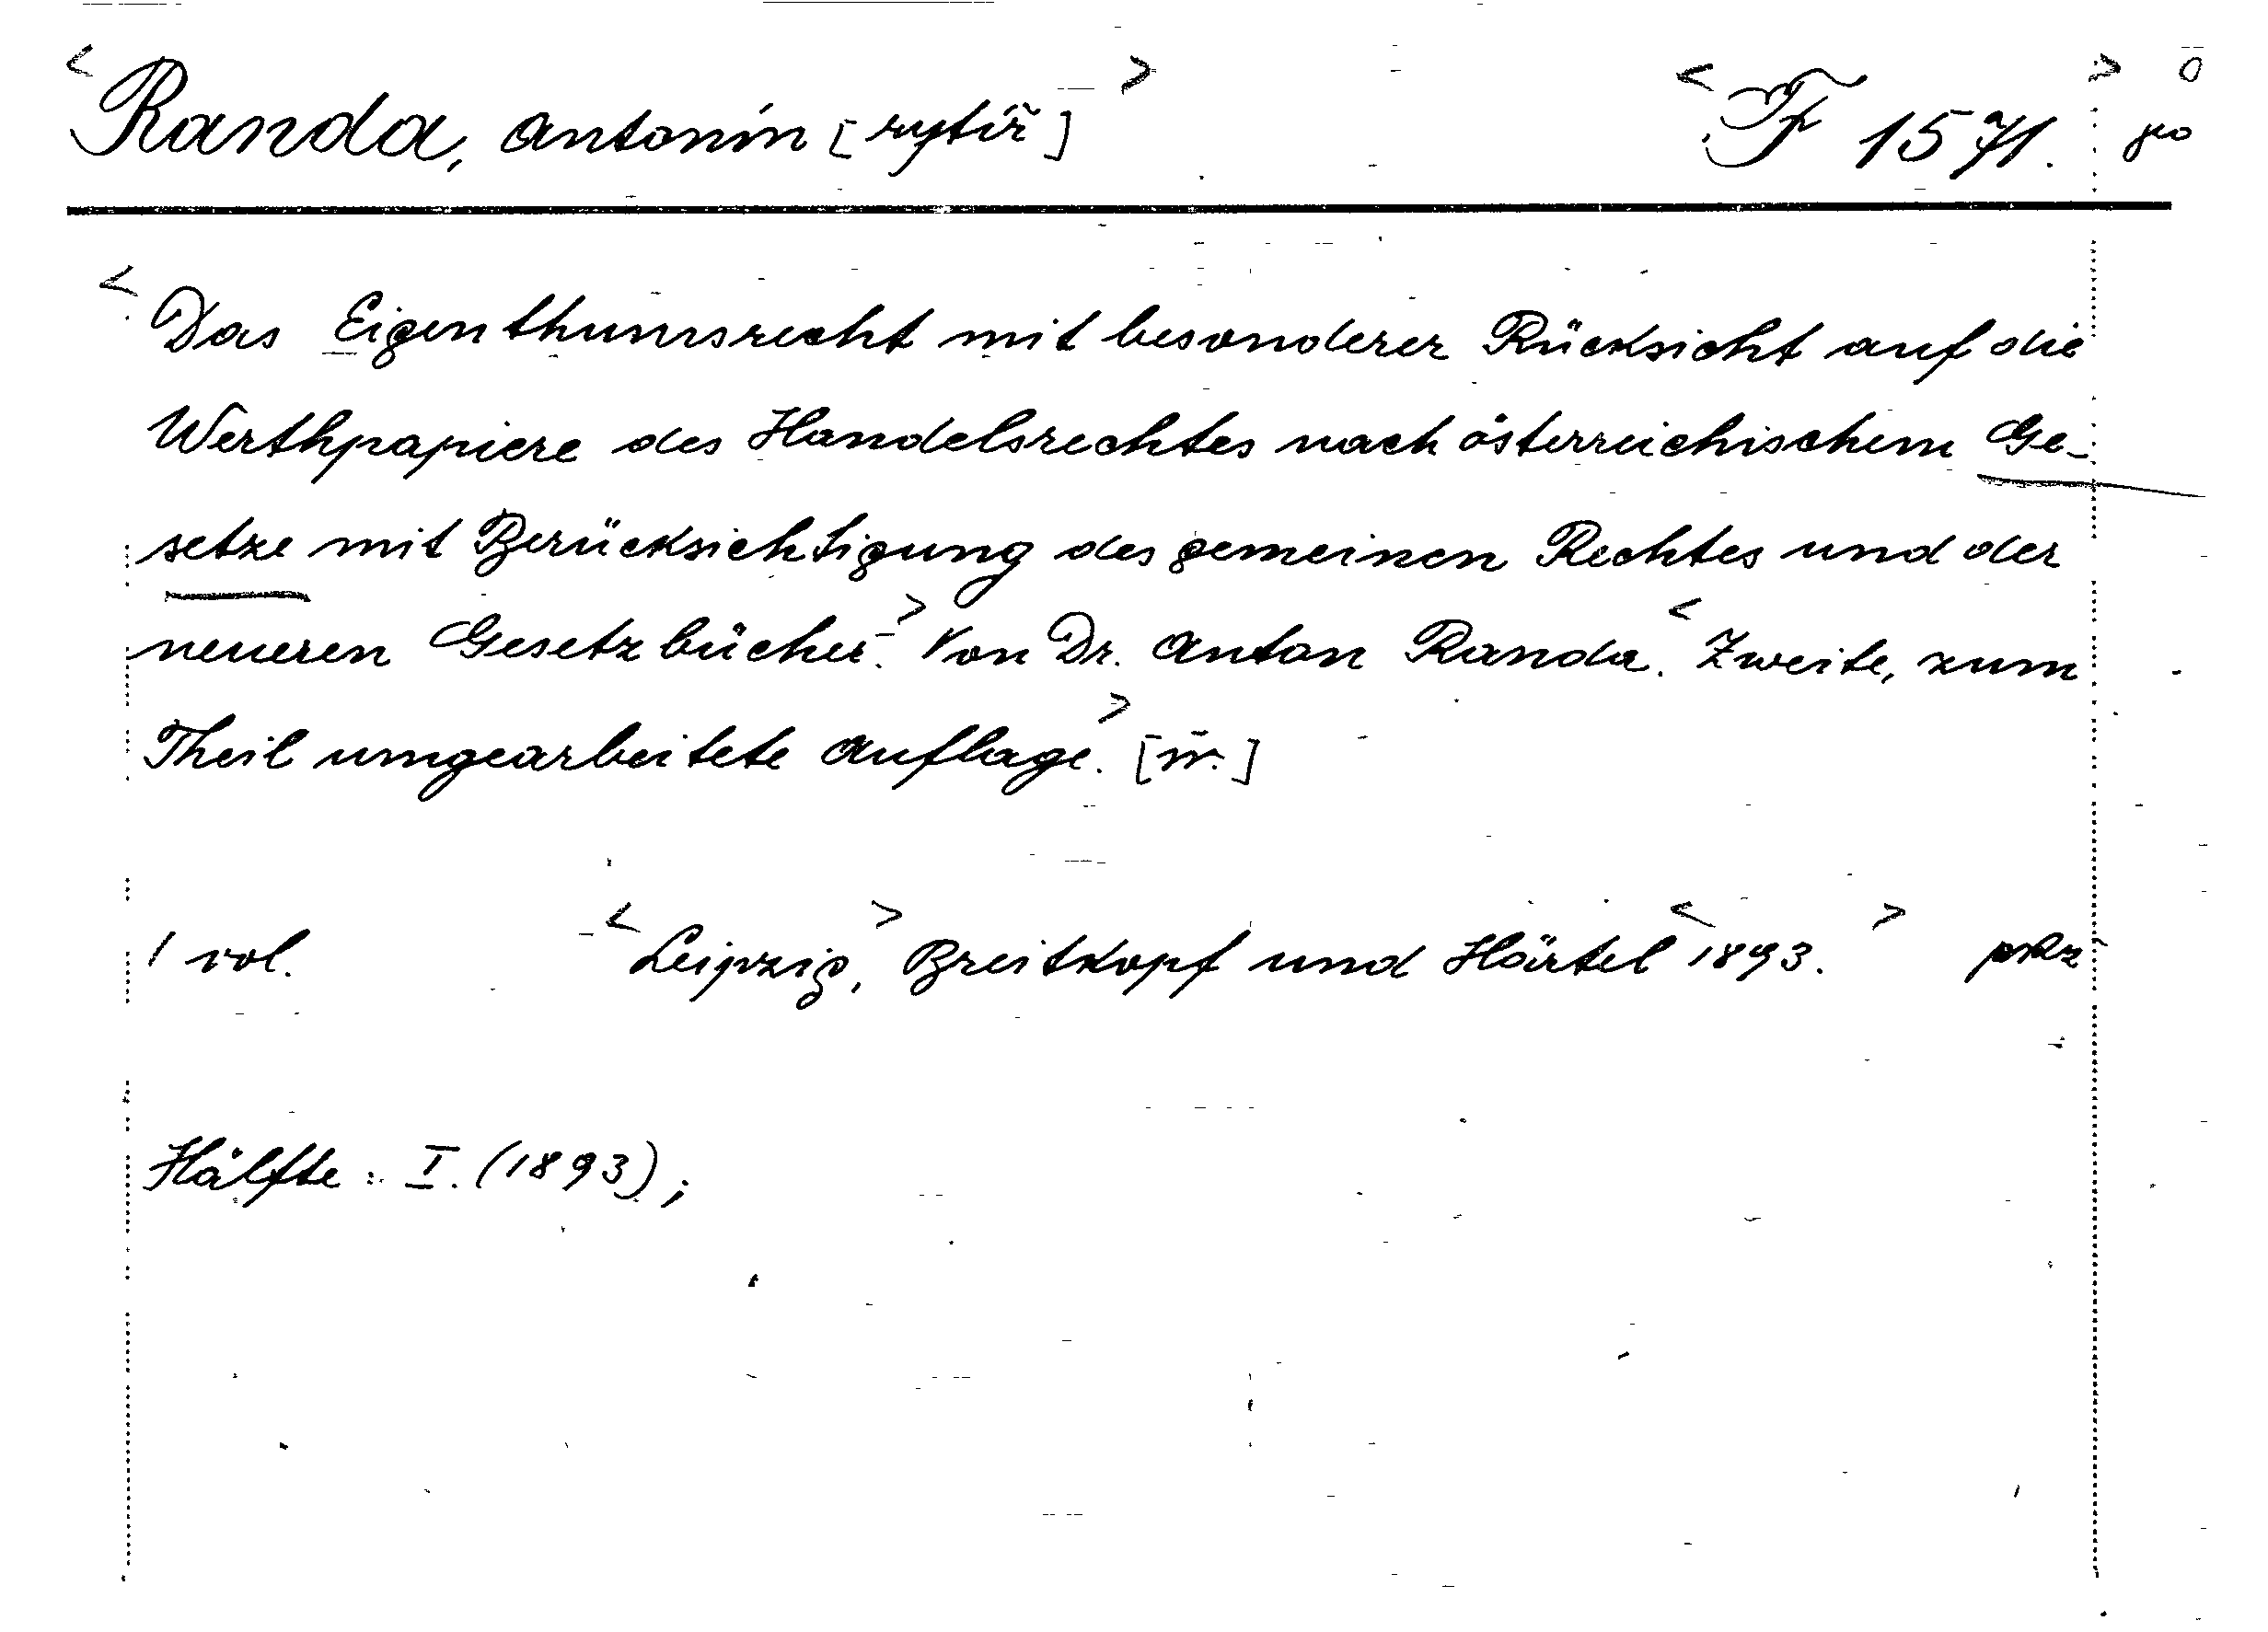 <Randa, Antonín [rytíř]> <F 1571.> o
Das Eigenthumsrecht mit besonderer Rücksicht auf die
Werthpapiere des Handelsrechtes nach österreichischem Ge-
setze mit Berücksichtigung des gemeinen Rechtes und der
neueren Gesetzbücher.> Von Dr. Anton Randa. <Zweite, zum
Theil umgearbeitete Auflage.>
1 vol. <Leipzig,> Breitkopf und Härtel <1893.>
Hälfte: I. (1893);